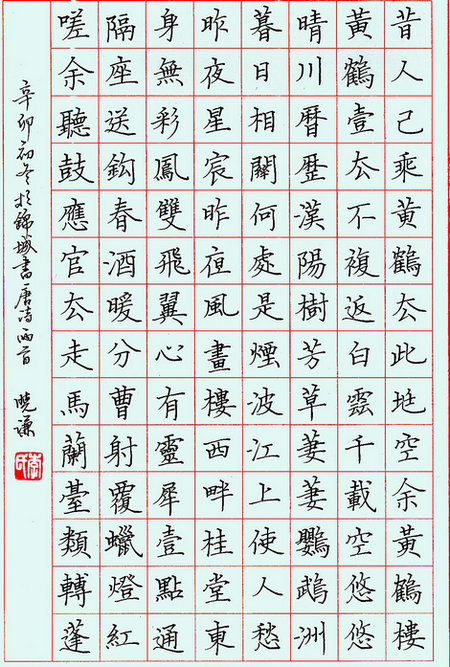 昔人己乘黃鶴厺此地空余黃鶴樓
黃鶴壹厺不複返白雲千載空悠悠
晴川曆歷漢陽樹芳草萋萋鸚鵡洲
暮日相關何處是煙波江上使人愁
昨夜星宸昨夜風畫樓西畔桂堂東
身無彩鳳雙飛翼心有靈犀壹點通
隔座送鈎春酒暖分曹射覆蠟燈紅
嗟余聽鼓應官厺走馬蘭臺類轉蓬
辛卯初冬於錦城書唐詩两首 曉谦